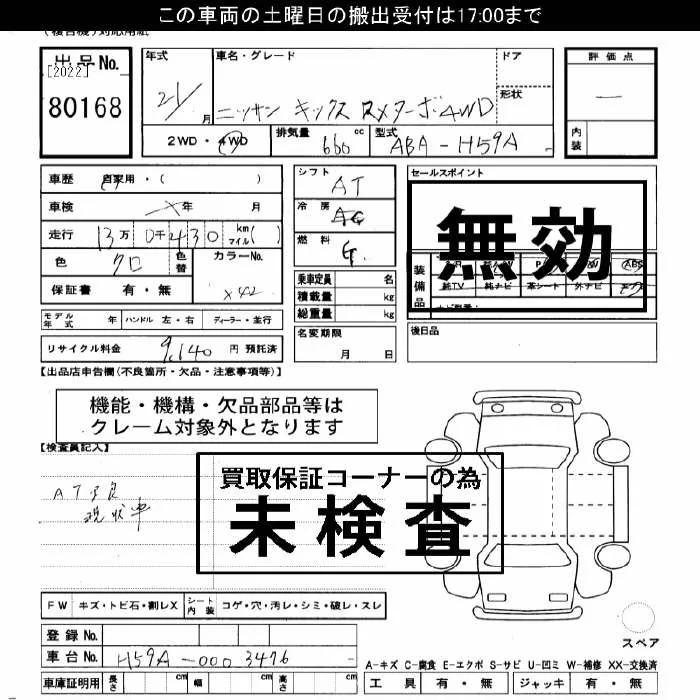 この車両の土曜日の搬出受付は17:00まで
出品No.
[2022]
80168
年式 21 月
車名・グレード
ニッサン キックス RXターボ4WD
ドア
形状
2WD・4WD 排気量 660 cc 型式 ABA-H59A
評価点
内装
車歴 自家用・( )
車検 年 月
走行 13万 0千430 km マイル( )
色 クロ 色替 カラーNo. X42
保証書 有・無
シフト AT
冷房 AC
燃料 G
乗車定員 名
積載量 kg
総重量 kg
名変期限 月 日
セールスポイント
無効
装備品 ABS
純TV 純ナビ 革シート 外ナビ
後日品
モデル年式 年 ハンドル 左・右 ディーラー・並行
リサイクル料金 9,140 円 預託済
【出品店申告欄(不良箇所・欠品・注意事項等)】
機能・機構・欠品部品等は
クレーム対象外となります
【検査員記入】
AT不良
現状車
買取保証コーナーの為
未検査
FW キズ・トビ石・割レX シート内装 コゲ・穴・汚レ・シミ・破レ・スレ
登録No.
車台No. H59A-000 3476
車庫証明用 長さ cm 幅 cm 高さ cm
スペア
A-キズ C-腐食 E-エクボ S-サビ U-凹ミ W-補修 XX-交換済
工具 有・無 ジャッキ 有・無